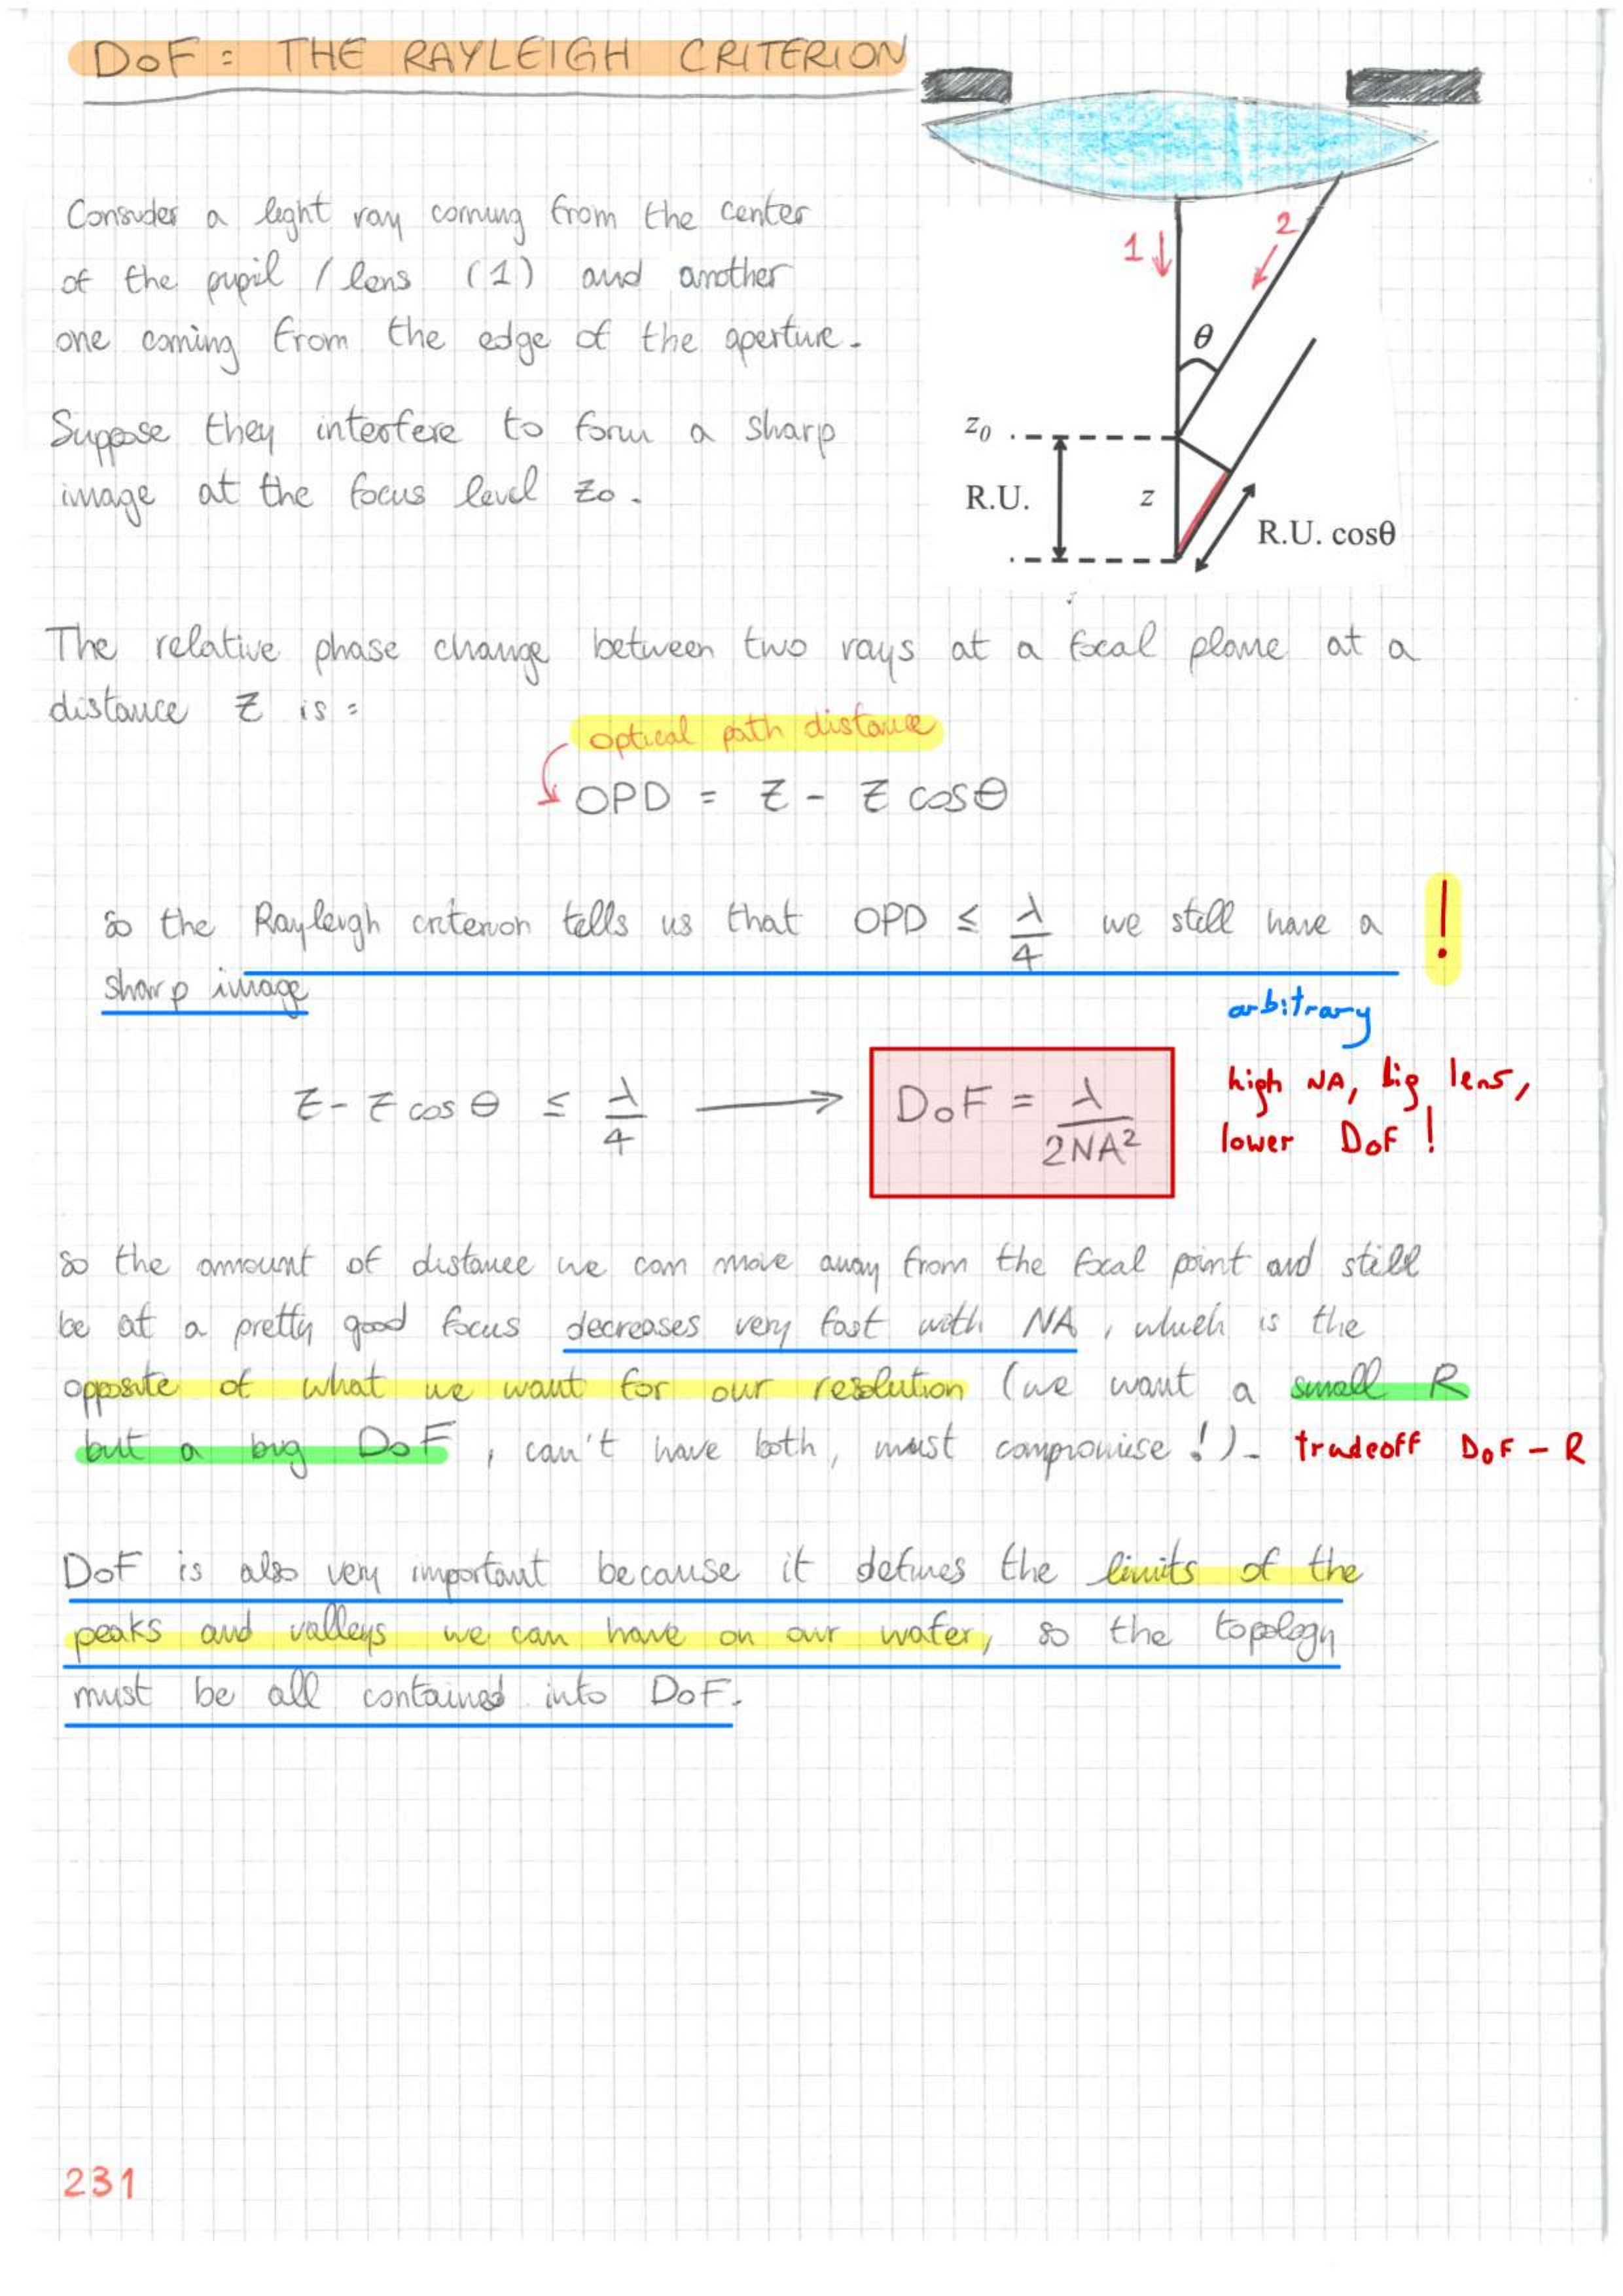 DoF : THE RAYLEIGH CRITERION
Consider a light ray coming from the center
of the pupil / lens (1) and another
one coming from the edge of the aperture.
Suppose they interfere to form a sharp
image at the focus level z0.
1
2
θ
z0
R.U.
z
R.U. cosθ
The relative phase change between two rays at a focal plane at a
distance z is :
optical path distance
OPD = z - z cosθ
so the Rayleigh criterion tells us that OPD ≤ λ/4 we still have a !
sharp image
arbitrary
z - z cosθ ≤ λ/4 → DoF = λ/2NA²
high NA, big lens,
lower DoF !
so the amount of distance we can move away from the focal point and still
be at a pretty good focus decreases very fast with NA, which is the
opposite of what we want for our resolution (we want a small R
but a big DoF, can't have both, must compromise !). tradeoff DoF - R
DoF is also very important because it defines the limits of the
peaks and valleys we can have on our wafer, so the topology
must be all contained into DoF.
231